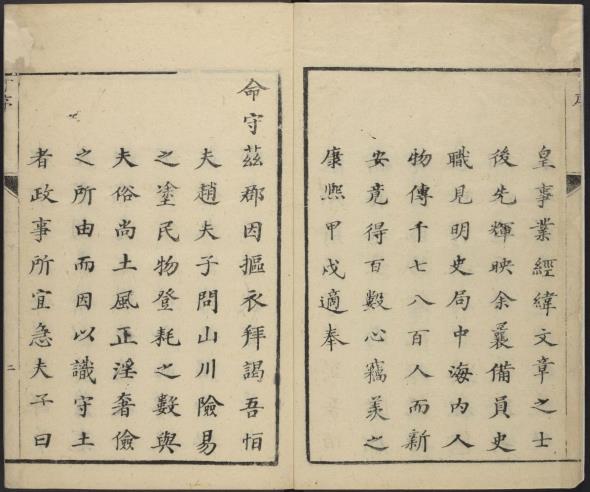 皇事業經緯文章之士
後先輝映余曩備員史
職見明史局中海内人
物傳千七八百人而新
安竟得百數心竊羨之
康熙甲戌適奉
命守茲郡因摳衣拜謁吾恒
夫趙夫子問山川險易
之塗民物登耗之數與
夫俗尚土風正淫奢儉
之所由而因以識守土
者政事所宜急夫子曰
二